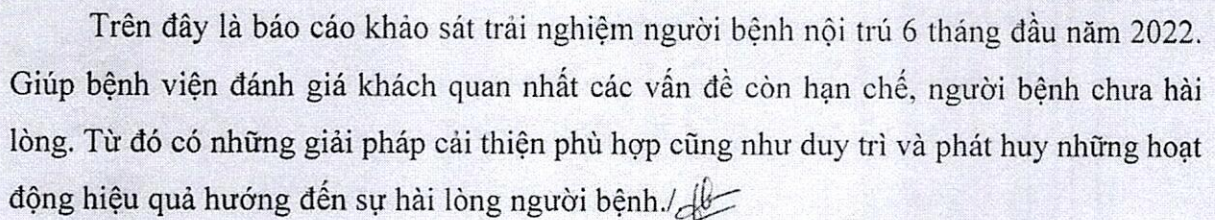 Trên đây là báo cáo khảo sát trải nghiệm người bệnh nội trú 6 tháng đầu năm 2022.
Giúp bệnh viện đánh giá khách quan nhất các vấn đề còn hạn chế, người bệnh chưa hài
lòng. Từ đó có những giải pháp cải thiện phù hợp cũng như duy trì và phát huy những hoạt
động hiệu quả hướng đến sự hài lòng người bệnh./